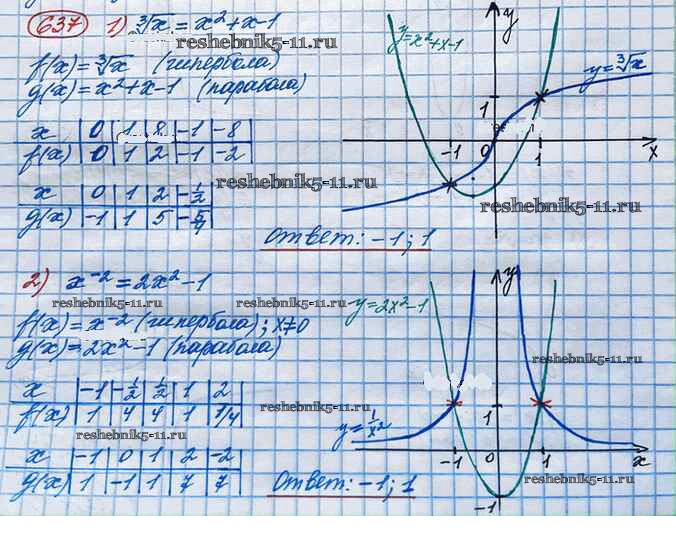 637 1) ∛x = x²+x-1
reshebnik5-11.ru
f(x) = ∛x (гипербола)
g(x) = x²+x-1 (парабола)
x | 0 | 1 | 8 | -1 | -8 |
f(x) | 0 | 1 | 2 | -1 | -2 |
x | 0 | 1 | 2 | -1/2 |
g(x) | -1 | 1 | 5 | -5/4 |
reshebnik5-11.ru
ответ: -1; 1
y=x²+x-1
y
y=∛x
1
-1
0
1
x
reshebnik5-11.ru
2) x⁻² = 2x²-1
reshebnik5-11.ru
reshebnik5-11.ru
f(x) = x⁻² (гипербола); x≠0
g(x) = 2x²-1 (парабола)
x | -1 | -1/2 | 1/2 | 1 | 2 |
f(x) | 1 | 4 | 4 | 1 | 1/4 |
reshebnik5-11.ru
reshebnik5-11.ru
x | -1 | 0 | 1 | 2 | -2 |
g(x) | 1 | -1 | 1 | 7 | 7 |
Ответ: -1; 1
y=2x²-1
y
reshebnik5-11.ru
1
reshebnik5-11.ru
y=1/x²
-1
0
1
x
reshebnik5-11.ru
-1